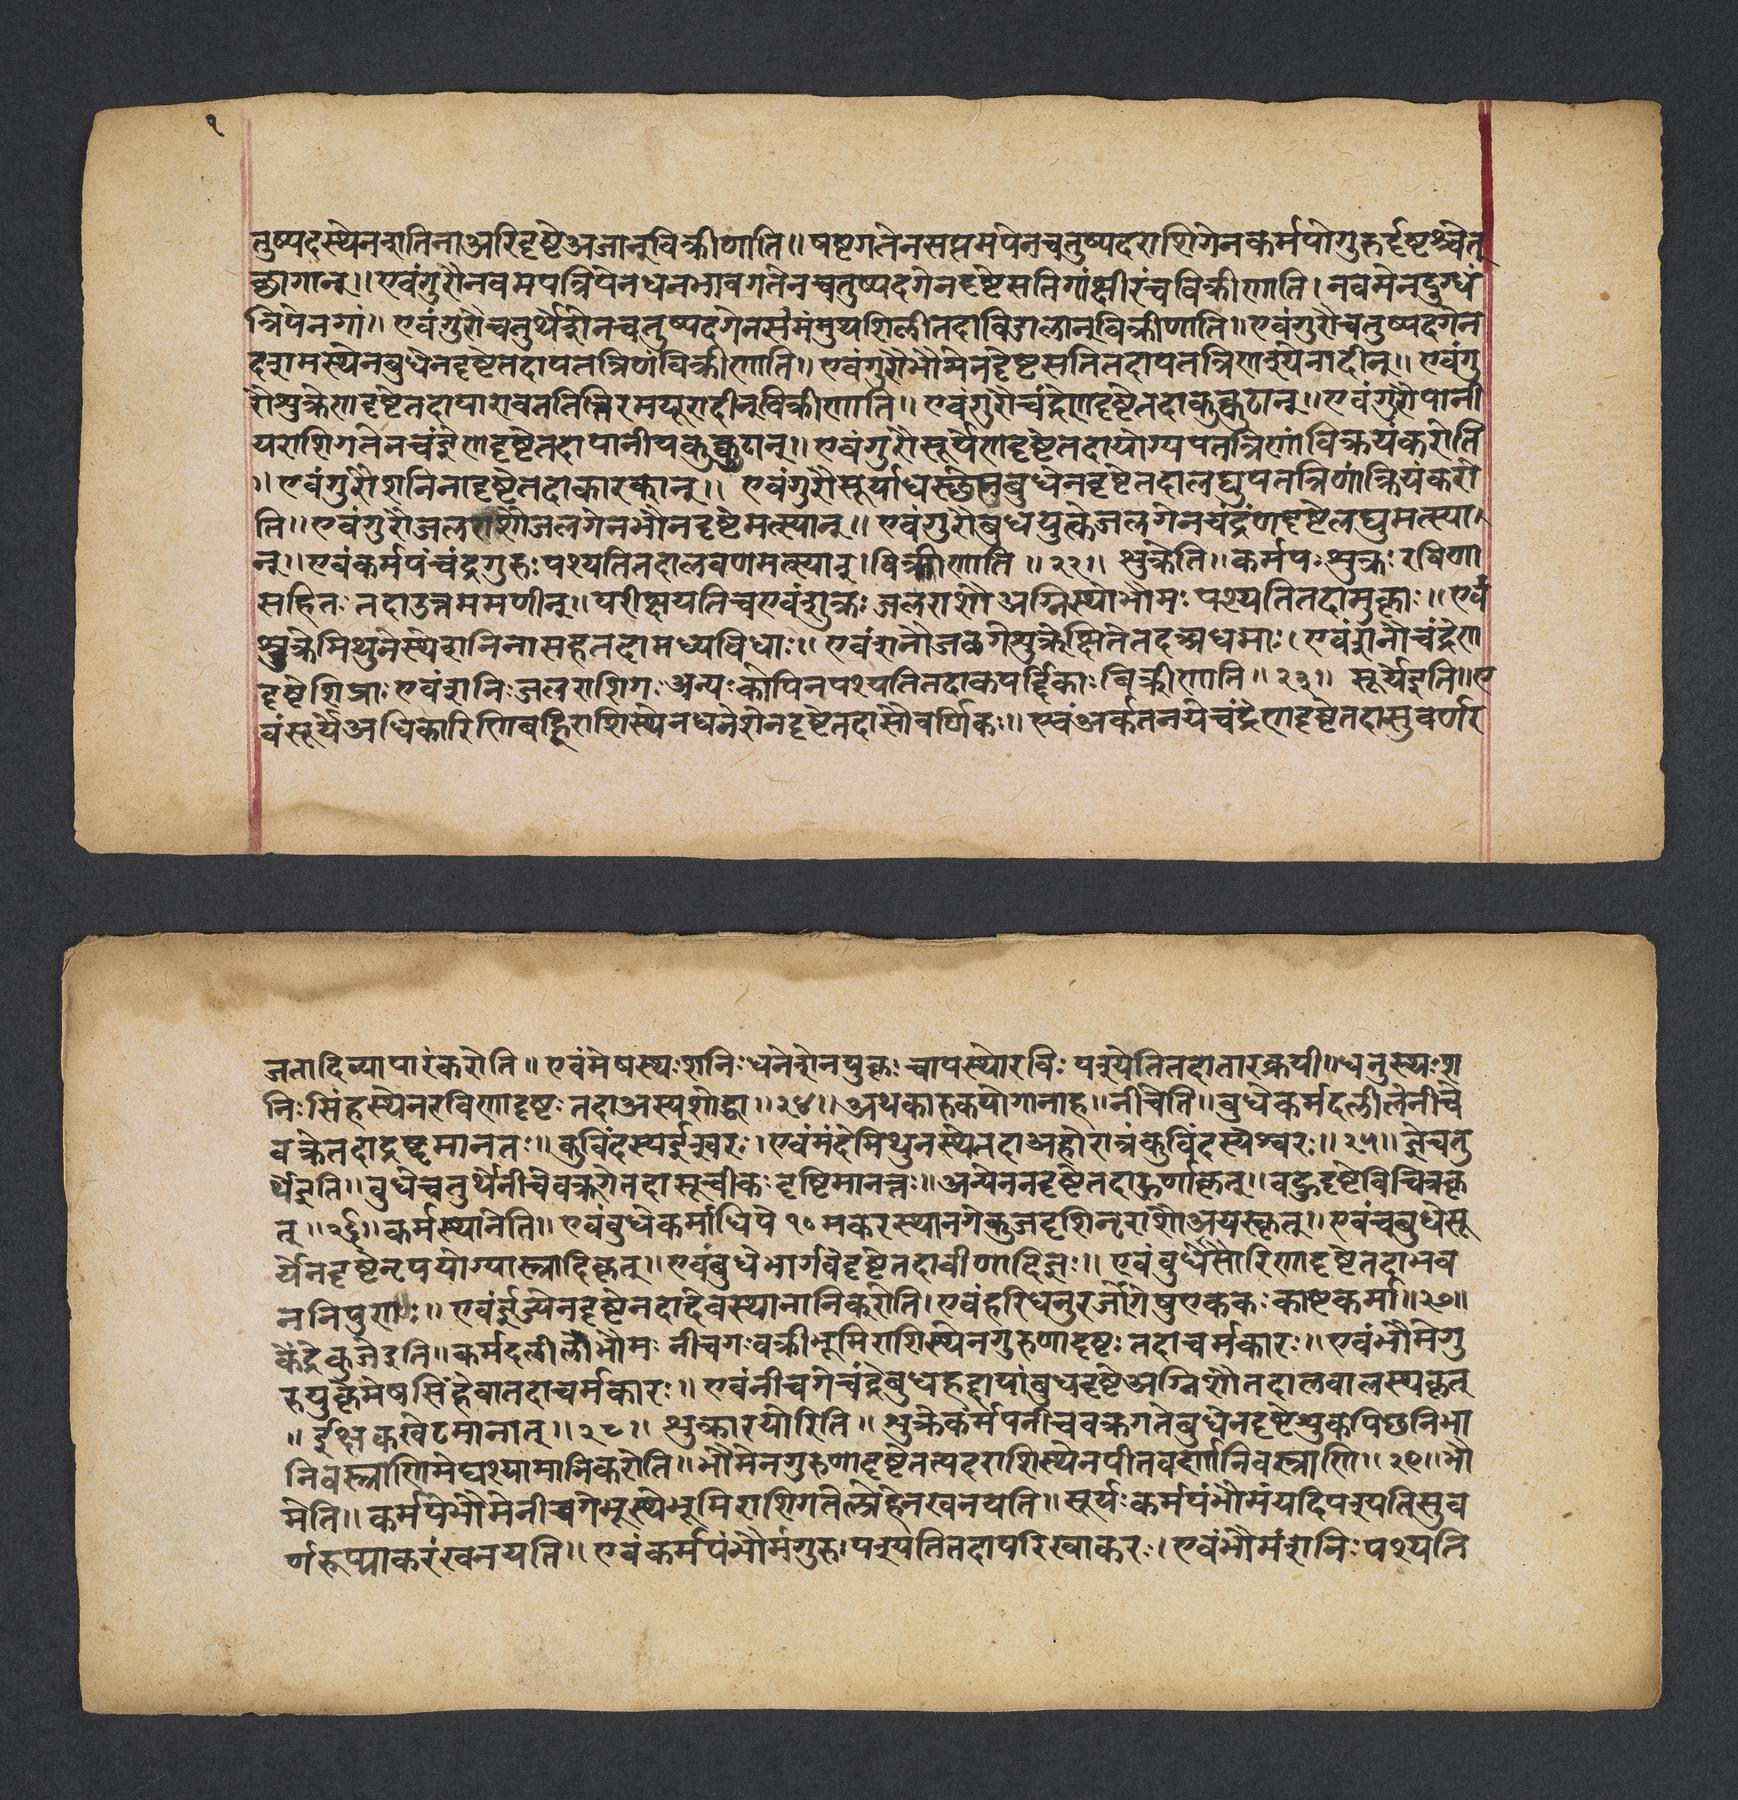 १
तुष्पदस्थेनशनिनाअरिदृष्टेअजान्विक्रीणाति॥षष्टगतेनसप्तमपेनचतुष्पदराशिगेनकर्मपोगुरुर्दृष्टश्चेत्
छागान्॥एवंगुरौनवमपत्रिपेनधनभावगतेनचतुष्पदगेनदृष्टेसतिगांक्षीरंचविक्रीणाति।नवमेनदुग्धं
त्रिपेनगां॥एवंगुरौचतुर्थेशेनचतुष्पदगेनसमंमुथशिलीतदाविडालान्विक्रीणाति॥एवंगुरौचतुष्पदगेन
दशमस्थेनबुधेनदृष्टेतदापतत्रिणंविक्रीणाति॥एवंगुरौभौमेनदृष्टेसतितदापतत्रिणश्येनादीन्॥एवंगु
रौशुक्रेणदृष्टेतदापारावततित्तिरमयूरादीन्विक्रीणाति॥एवंगुरौचंद्रेणदृष्टेतदाकुक्कुटान्॥एवंगुरौपानी
यराशिगतेनचंद्रेणदृष्टेतदापानीयकुक्कुटान्॥एवंगुरौसूर्येणदृष्टेतदायोग्यपतत्रिणांविक्रयंकरोति
॥एवंगुरौशनिनादृष्टेतदाकारकान्॥एवंगुरौसूर्याधस्छेनबुधेनदृष्टेतदालघुपतत्रिणांक्रियंकरो
ति॥एवंगुरौजलराशौजलगेनभौनदृष्टेमत्स्यान्॥एवंगुरौबुधयुक्तेजलगेनचंद्रेणदृष्टेलघुमत्स्या
न्॥एवंकर्मपंचंद्रगुरुःपश्यतितदालवणमत्स्यान्।विक्रीणाति॥२२॥शुक्रेति॥कर्मपःशुक्रःरविणा
सहितःतदाउत्रममणीन्॥परीक्षयतिचएवंशुक्रःजलराशौअग्निस्थोभौमःपश्यतितदामुक्ताः॥एवं
शुक्रेमिथुनेस्थेशनिनासहतदामध्यविधाः॥एवंशनौजलगेशुक्रेक्षितेतदअधमाः।एवंशनौचंद्रेण
दृष्टेशिप्राःएवंशनिःजलराशिगःअन्यःकोपिनपश्यतितदाकपर्द्दिकाःविक्रीणाति॥२३॥सूर्येइति॥ए
वंसूर्येअधिकारिणिवह्निराशिस्थेनधनेशेनदृष्टेतदासौवर्णिकः॥एवंअर्कतनयेचंद्रेणदृष्टेतदासुवर्णर
जतादिव्यापारंकरोति॥एवंमेषस्थःशनिःधनेशेनयुक्तःचापस्थोरविःपश्येतितदातारक्रयी॥धनुस्थःश
निःसिंहस्थेनरविणादृष्टःतदाअस्पशोद्धा॥२४॥अथकारुकयोगानाह॥नीचेति॥बुधेकर्मदलीलेनीचे
वक्रेतदादुष्टमानतः॥कुविंदस्यईश्वरः।एवंमंदेमिथुनस्थेतदाअहोरात्रंकुविंदस्येश्वरः॥२५॥ज्ञेचतु
र्थेइति॥बुधेचतुर्थेनीचेवक्रगेतदासूचीकःदृष्टिमानत्रः॥अन्येननदृष्टेतदाऊर्णाकृत्॥बहुदृष्टेविचित्रकृ
त्॥२६॥कर्मस्थानेति॥एवंबुधेकर्माधिपे१०मकरस्थानगेकुजदृशिनृराशौअयस्कृत्॥एवंचबुधेसू
र्येनदृष्टेनृपयोग्यास्त्रादिकृत्॥एवंबुधेभार्गवेदृष्टेतदावीणादिज्ञः॥एवंबुधेसौरिणादृष्टेतदाभव
ननिपुणः॥एवंईज्येनदृष्टेनदादेवस्थानानिकरोति।एवंहरिधनुरजांगेषुएककःकाष्टकर्मा॥२७॥
केंद्रेकुजेइति॥कर्मदलीलौभौमःनीचगःवक्रीभूमिराशिस्थेनगुरुणादृष्टःतदाचर्मकारः॥एवंभौमेगु
रुयुक्तेमेषसिंहेवातदाचर्मकारः॥एवंनीचगेचंद्रेबुधहद्दायांबुधदृष्टेअग्निशौतदालवालस्यकृत्
॥ईक्षकखेटमानात्॥२८॥शुक्रारयोरिति॥शुक्रेकर्मपनीचवक्रगतेबुधेनदृष्टेशुकपिछनिभा
निवस्त्राणिमेघश्यामानिकरोति॥भौमेनगुरुणादृष्टेतत्पदराशिस्थेनपीतवर्णानिवस्त्राणि॥२९॥भौ
मेति॥कर्मपेभौमेनीचगेभूस्थेभूमिराशिगतेलोहेनखनयति॥सूर्यःकर्मपंभौमंयदिपश्यतिसुव
र्णरूप्याकरंखनयति॥एवंकर्मपंभौमंगुरु।पश्यतितदापरिखाकरः।एवंभौमंशनिःपश्यति